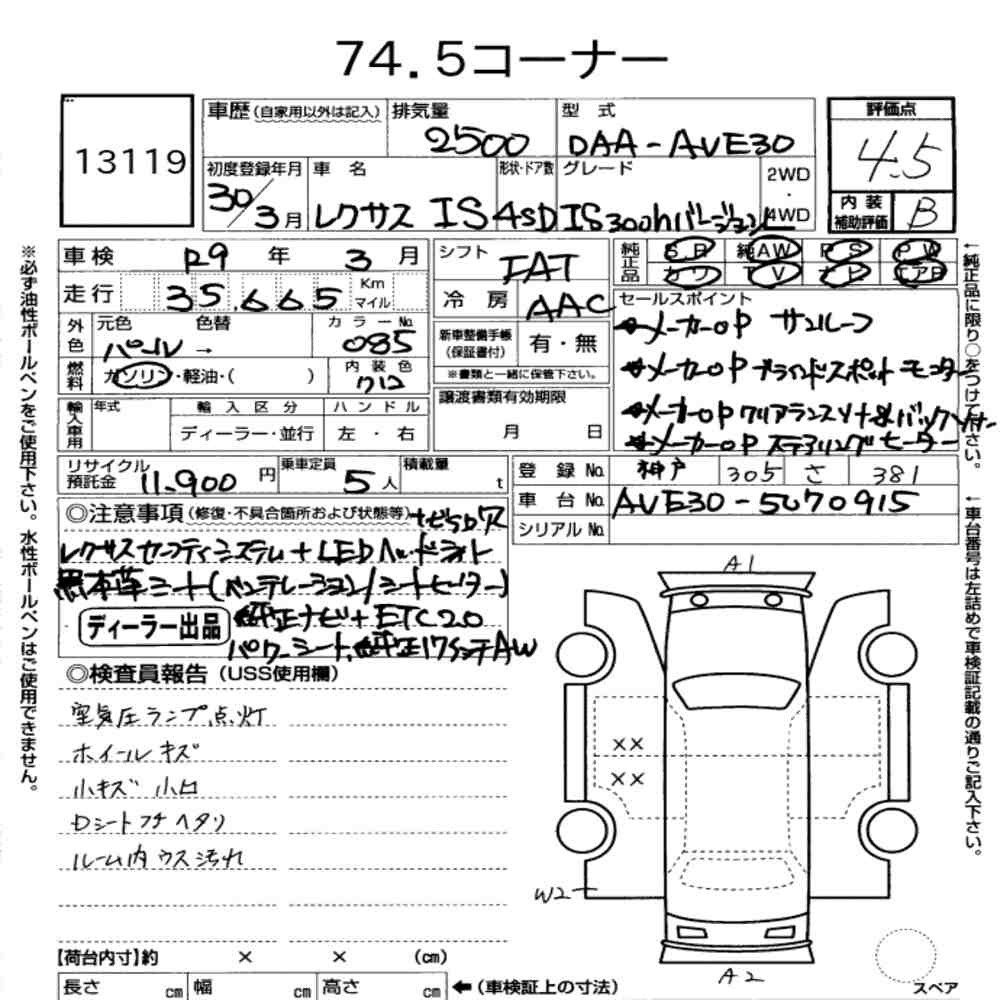 74.5コーナー
13119
車歴(自家用以外は記入) 排気量 2500 型式 DAA-AVE30
評価点 4.5
初度登録年月 30/3月 車名 レクサス IS 形状・ドア数 4SD グレード IS300hバージョンL 2WD・4WD
内装補助評価 B
車検 R9年3月 シフト FAT
純正品 S R 純AW P S P W
カワ T V ナビ エアB
走行 35,665 Km マイル 冷房 AAC
セールスポイント
外色 元色 パール → 色替 カラーNo. 085
新車整備手帳(保証書付) 有・無
※書類と一緒に保管下さい。
→メーカーOP サンルーフ
燃料 ガソリン・軽油・( ) 内装色 712
→メーカーOP ブラインドスポットモニター
輸入車用 年式 輸入区分 ハンドル
ディーラー・並行 左・右
譲渡書類有効期限 月 日
→メーカーOP クリアランスソナー&バックソナー
→メーカーOP ステアリングヒーター
リサイクル預託金 11,900円 乗車定員 5人 積載量 t
登録No. 神戸 305 さ 381
車台No. AVE30-5070915
シリアルNo.
◎注意事項(修復・不具合箇所および状態等) ナビSD欠
レクサスセーフティシステム+ LEDヘッドライト
黒本革シート(ベンチレーション/シートヒーター)
ディーラー出品 純正ナビ+ ETC2.0
パワーシート、純正17インチAW
◎検査員報告(USS使用欄)
空気圧ランプ点灯
ホイールキズ
小キズ 小凹
Dシートフチヘタリ
ルーム内ウス汚れ
A1
××
××
W2
A2
スペア
【荷台内寸】約 × × (cm)
長さ cm 幅 cm 高さ cm ←(車検証上の寸法)
※必ず油性ボールペンをご使用下さい。水性ボールペンはご使用できません。
←純正品に限り○をつけて下さい。
←車台番号は左詰めで車検証記載の通りご記入下さい。